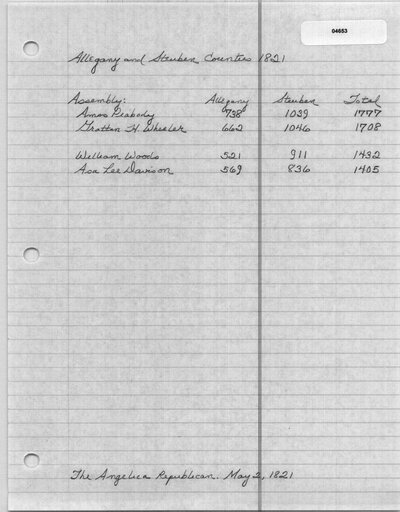 04653
Allegany and Steuben Counties 1821
Assembly: Allegany Steuben Total
Amos Peabody 738 1039 1777
Grattan H. Wheeler 662 1046 1708
William Woods 521 911 1432
Asa Lee Davison 569 836 1405
The Angelica Republican. May 2, 1821